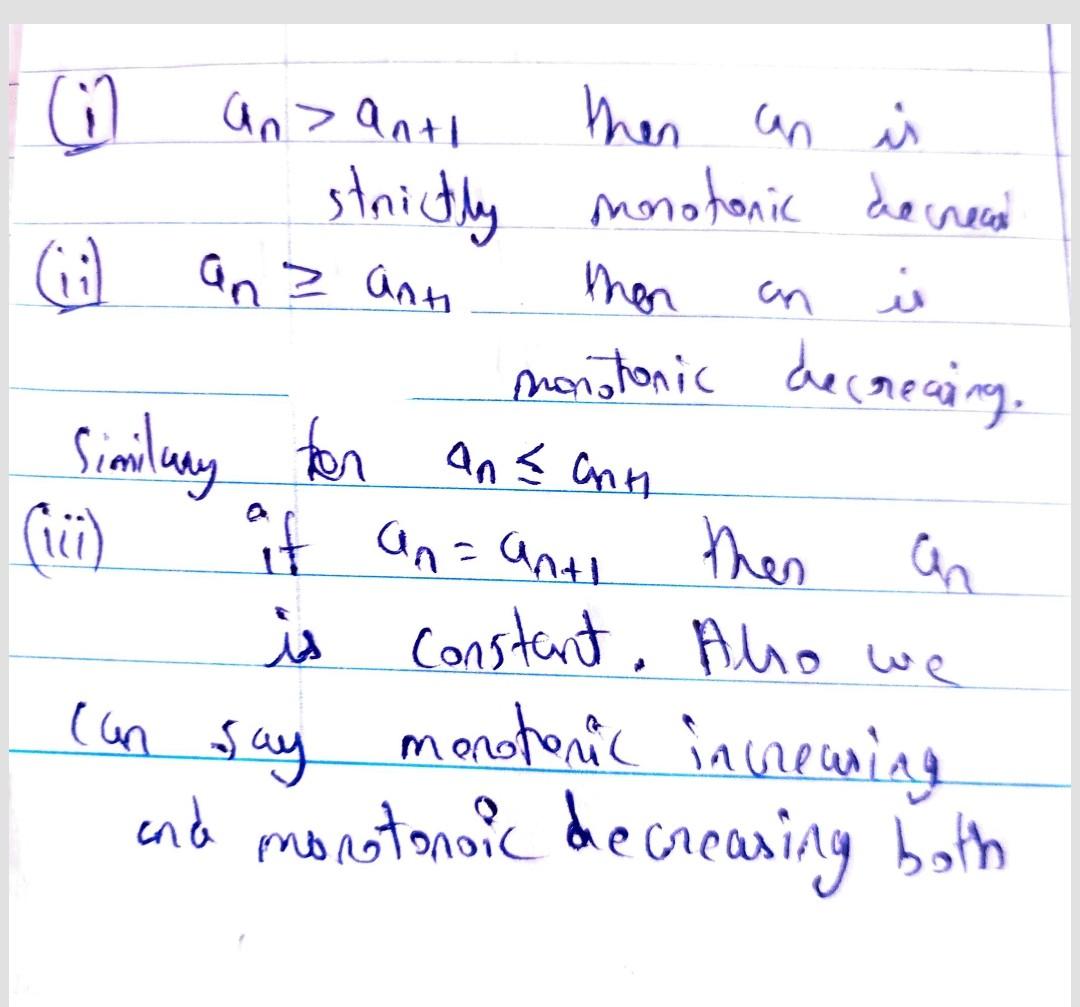 (i) an > an+1 then an is
strictly monotonic decreas
(ii) an ≥ an+1 then an is
monotonic decreasing.
Similary for an ≤ an+1
(iii) if an = an+1 then an
is constant. Also we
can say monotonic increasing
and monotonoic decreasing both